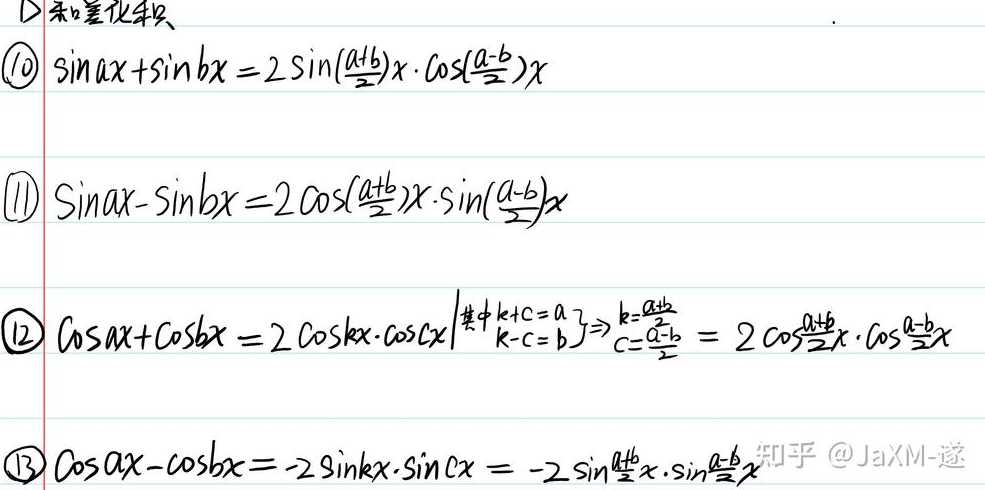 ▷和差化积
⑩ sinax+sinbx=2sin(\frac{a+b}{2})x·cos(\frac{a-b}{2})x
⑪ sinax-sinbx=2cos(\frac{a+b}{2})x·sin(\frac{a-b}{2})x
⑫ cosax+cosbx=2coskx·coscx | 其中 k+c=a k-c=b } ⇒ k=\frac{a+b}{2} c=\frac{a-b}{2} = 2cos\frac{a+b}{2}x·cos\frac{a-b}{2}x
⑬ cosax-cosbx=-2sinkx·sincx=-2sin\frac{a+b}{2}x·sin\frac{a-b}{2}x
知乎 @JaXM-遂